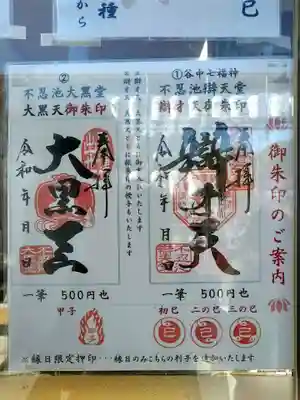 から
種
巳
御朱印のご案内
①谷中七福神
不忍池辯天堂
辯才天御朱印
奉拝
辯才天
令和 年 月 日
一筆 500円也
初巳 二の巳 三の巳
巳 巳 巳
②
不忍池大黒堂
大黒天御朱印
奉拝
大黒天
令和 年 月 日
一筆 500円也
甲子
※縁日限定押印・・・縁日のみこちらの判子を追加いたします